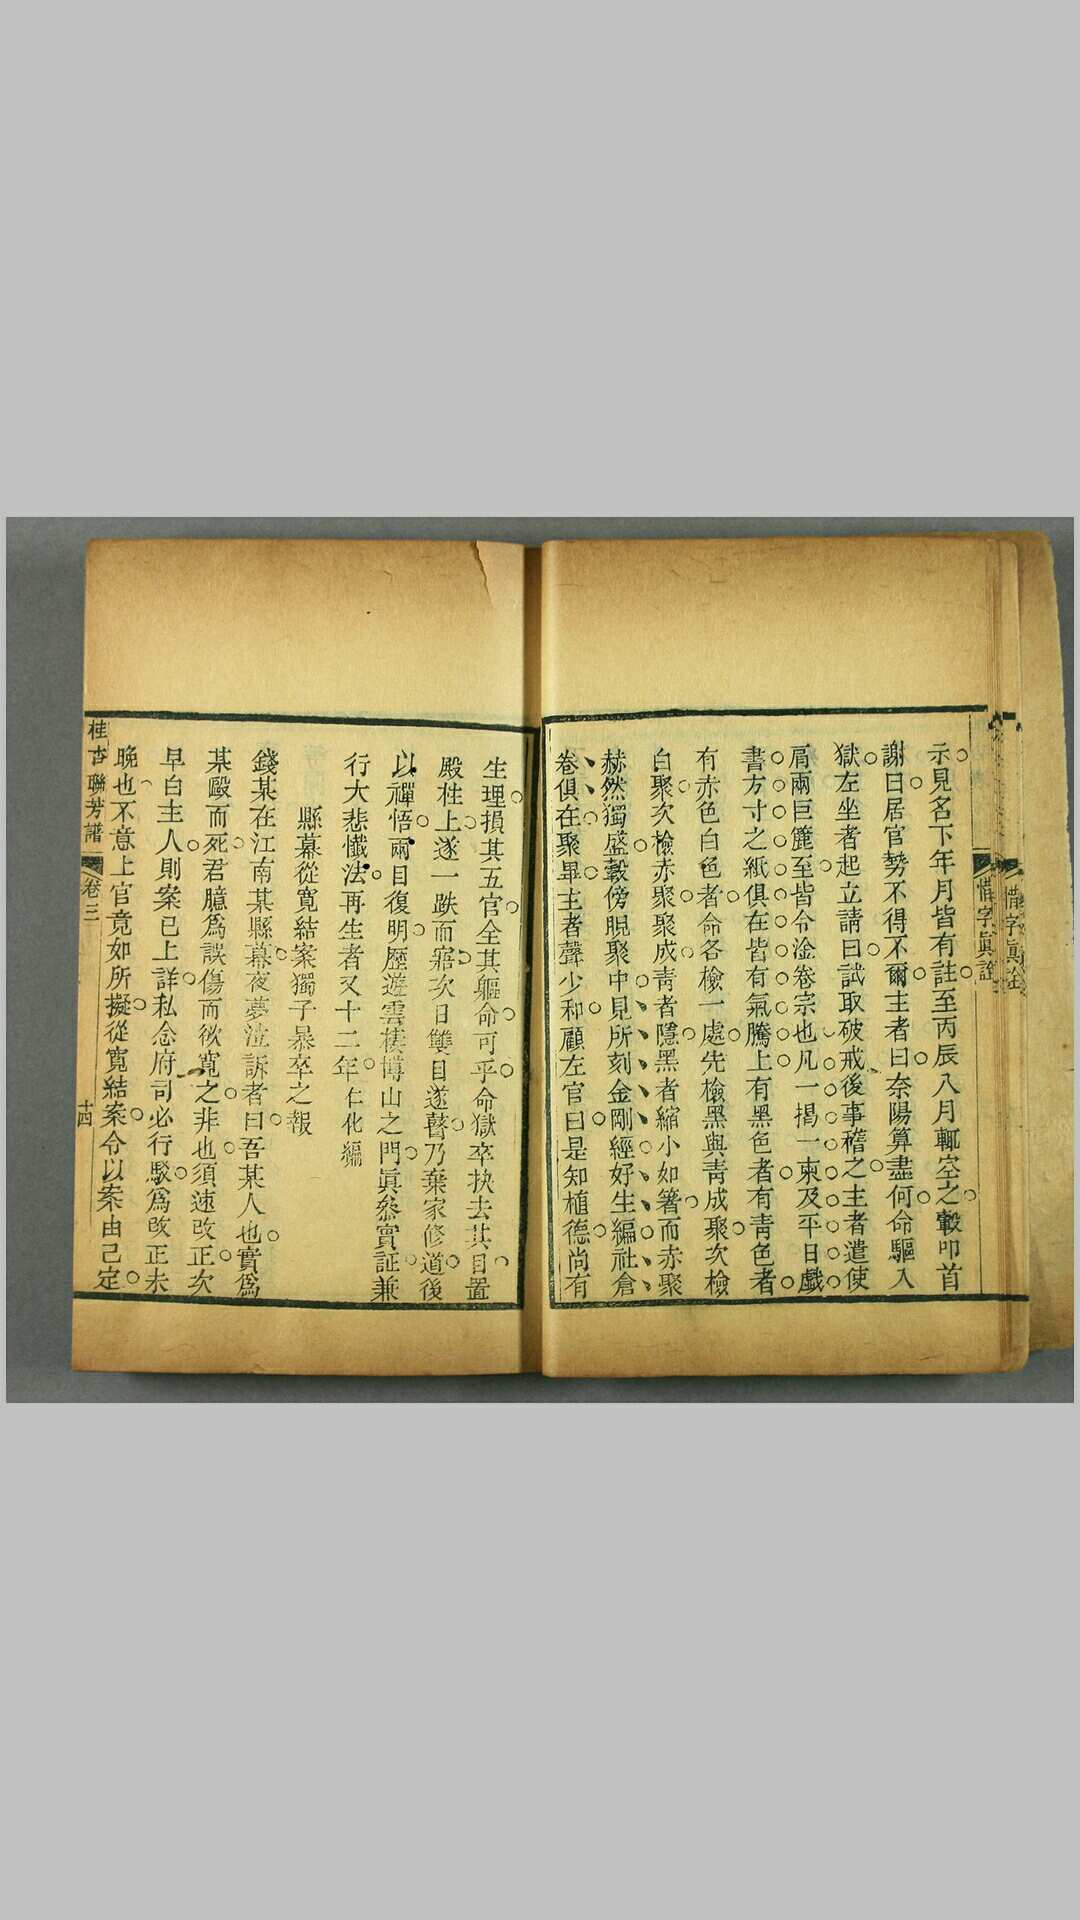 惜字眞詮
惜字眞詮
示見名下年月皆有註至丙辰八月輒空之轂叩首
謝曰居官勢不得不爾主者曰奈陽算盡何命驅入
獄左坐者起立請曰試取破戒後事稽之主者遣使
肩兩巨簏至皆令淦卷宗也凡一揭一柬及平日戲
書方寸之紙俱在皆有氣騰上有黑色者有青色者
有赤色白色者命各檢一處先檢黑與青成聚次檢
白聚次檢赤聚聚成青者隱黑者縮小如箸而赤聚
赫然獨盛轂傍睨聚中見所刻金剛經好生編社倉
卷俱在聚畢主者聲少和顧左官曰是知植德尚有
生理損其五官全其軀命可乎命獄卒抉去其目置
殿柱上遂一跌而寤次日雙目遂瞽乃棄家修道後
以禪悟兩目復明歷遊雲棲博山之門眞叅實証兼
行大悲懺法再生者又十二年仁化編
縣幕從寬結案獨子暴卒之報
錢某在江南某縣幕夜夢泣訴者曰吾某人也實爲
某毆而死君臆爲誤傷而欲寬之非也須速改正次
早白主人則案已上詳私念府司必行駁爲改正未
晚也不意上官竟如所擬從寬結案令以案由己定
桂杏聯芳譜
卷三
十四